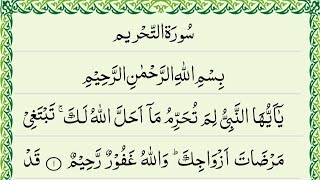 سُورَةُ التَّحْرِيم
بِسْمِ اللهِ الرَّحْمٰنِ الرَّحِيْمِ
يٰٓاَيُّهَا النَّبِيُّ لِمَ تُحَرِّمُ مَآ اَحَلَّ اللهُ لَكَ ۚ تَبْتَغِيْ
مَرْضَاتَ اَزْوَاجِكَ ؕ وَاللهُ غَفُوْرٌ رَّحِيْمٌ ۝۱ قَدْ